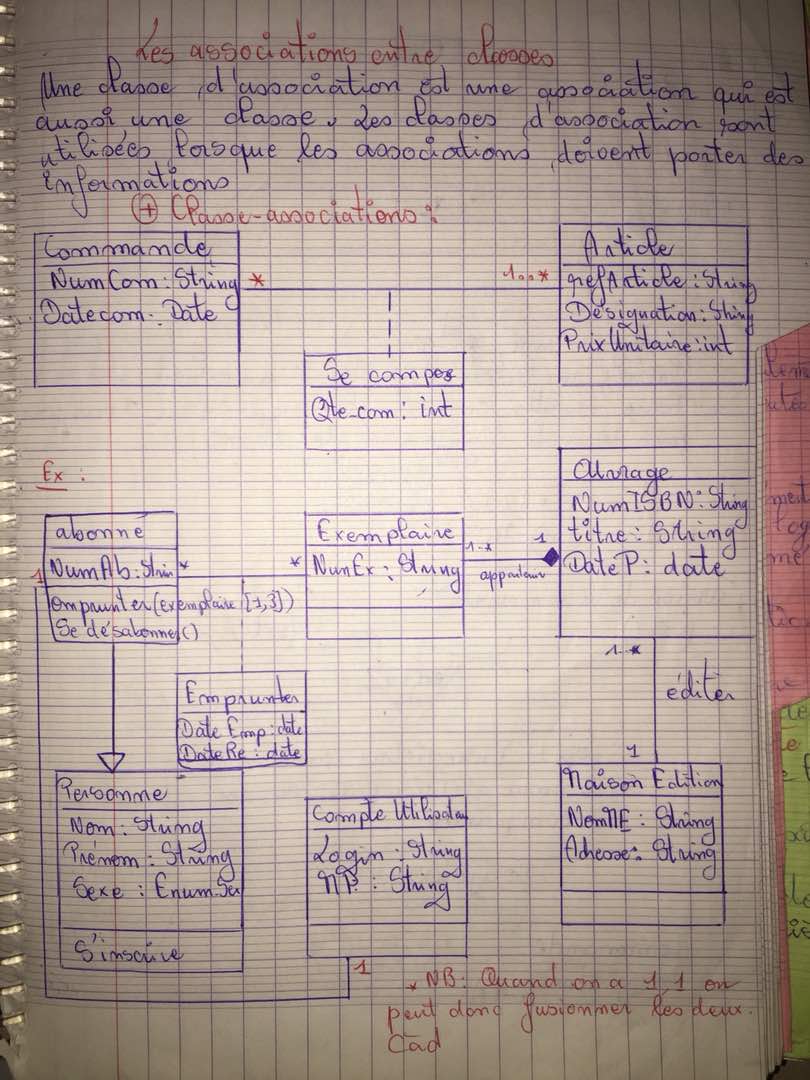 Les associations entre classes
Une classe d'association est une association qui est
aussi une classe. Les classes d'association sont
utilisées lorsque les associations doivent porter des
informations
(+) Classe-associations :
Commande
NumCom : String
Datecom : Date
*
1..*
Article
refArticle : String
Désignation : String
PrixUnitaire : int
Se compos
Qte_com : int
Ex :
abonné
NumAb : Strin
emprunter(exemplaire [1,3])
Se désabonner()
1
*
*
Exemplaire
NumEx : String
1..*
1
Ouvrage
NumISBN : String
titre : String
DateP : date
Emprunter
Date Emp : date
Date Re : date
1..*
éditer
1
Personne
Nom : String
Prénom : String
Sexe : Enum.Sex
S'inscrire
Compte Utilisateu
Login : String
MP : String
1
Maison Edition
NomME : String
Adresse : String
* NB : Quand on a 1,1 on
peut donc fusionner les deux.
Càd